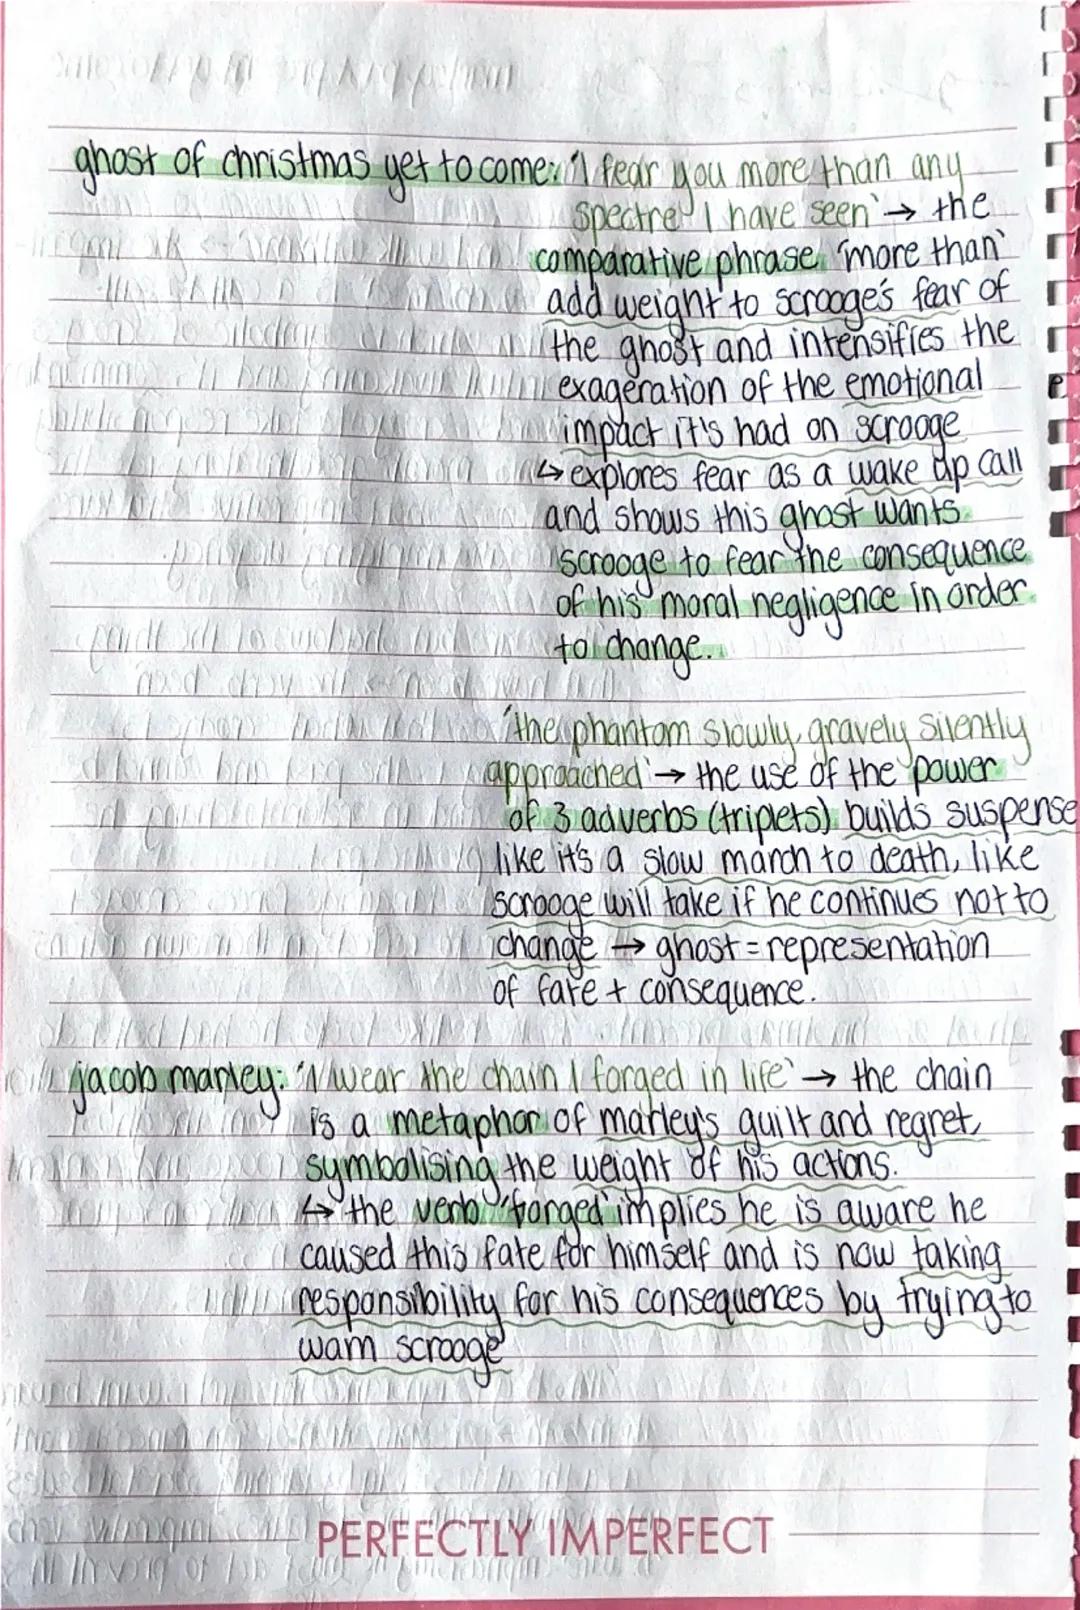 ghost of christmas yet to come: 'I fear you more than any
spectre I have seen' → the
comparative phrase 'more than'
add weight to scrooge's fear of
the ghost and intensifies the
exageration of the emotional
impact it's had on scrooge
↳ explores fear as a wake up call
and shows this ghost wants
scrooge to fear the consequence
of his moral negligence in order
to change.
'the phantom slowly, gravely silently
approached' → the use of the power
of 3 adverbs (triplets) builds suspense
like it's a slow march to death, like
scrooge will take if he continues not to
change → ghost = representation
of fate + consequence.
jacob marley: 'I wear the chain I forged in life' → the chain
is a metaphor of marley's guilt and regret,
symbolising the weight of his actions.
↳ the verb 'forged' implies he is aware he
caused this fate for himself and is now taking
responsibility for his consequences by trying to
warn scrooge
PERFECTLY IMPERFECT